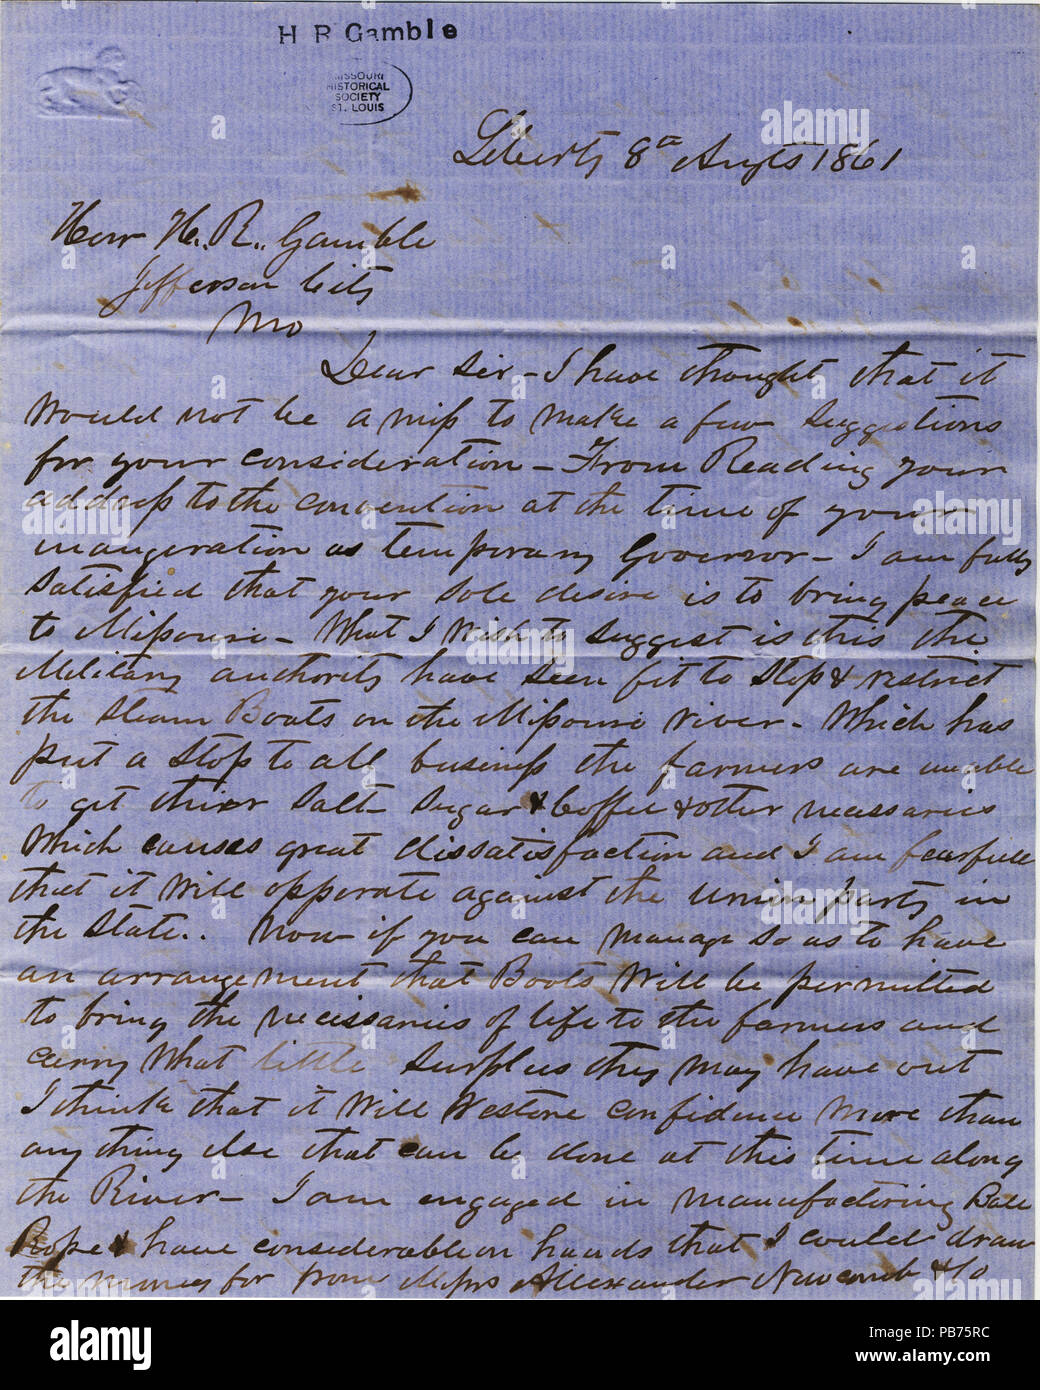 H R Gamble
MISSOURI
HISTORICAL
SOCIETY
ST. LOUIS
Liberty 8th Augts 1861
Hon H. R. Gamble
Jefferson City
Mo
Dear Sir - I have thought that it
Would not be a miss to make a few suggestions
for your consideration - From Reading your
address to the convention at the time of your
inaugeration as temporary Governor - I am fully
satisfied that your sole desire is to bring peace
to Missouri - What I Wish to suggest is this the
Military authority have seen fit to stop & restrict
the Steam Boats on the Missouri river - Which has
put a stop to all business the farmers are unable
to get thier Salt Sugar & Coffee & other necessaries
Which causes great dissatisfaction and I am fearfull
that it Will opporate against the Union party in
the State.. Now if you can manage so as to have
an arrangement that Boats Will be permitted
to bring the necissaries of life to the farmers and
carry What little surplus they may have out
I think that it Will Restore confidence more than
any thing else that can be done at this time along
the River - I am engaged in manufactoring Bale
Rope & have considerable on hands that I could draw
the money for from Messrs Allexander Newcomb & Co
alamy
Image ID: PB75RC
www.alamy.com